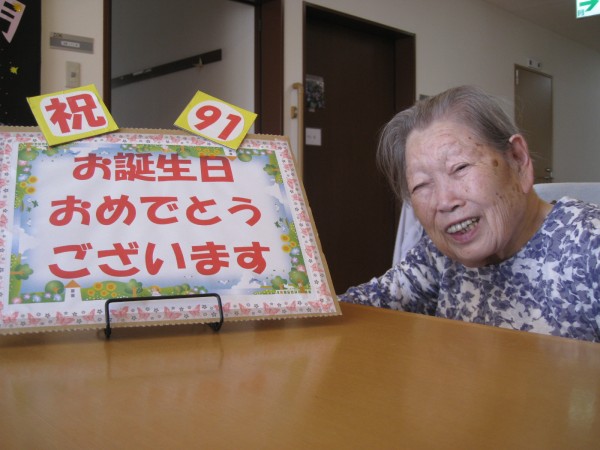 月
祝
91
お誕生日
おめでとう
ございます